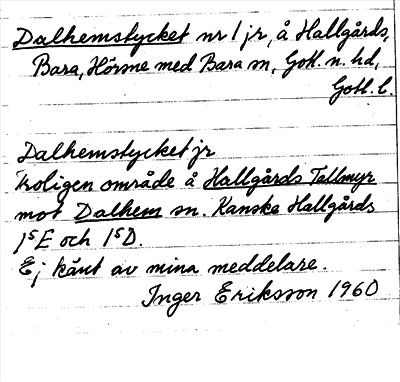 Dalhemstycket nr 1 jr, å Hallgårds,
Bara, Hörsne med Bara sn, Gotl. n. hd,
Gotl. l.
Dalhemstycket jr
Troligen område å Hallgårds Tallmyr
mot Dalhem sn. Kanske Hallgårds
1^sE och 1^sD.
Ej känt av mina meddelare.
Inger Eriksson 1960